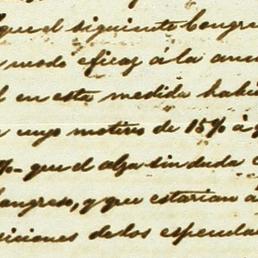 que el siguiente Congre
modo eficaz á la
en esta medida habi
cuyo motivo de 15% á
%- que el alza sin duda
ongreso, y que estarian á
iciones de los especula